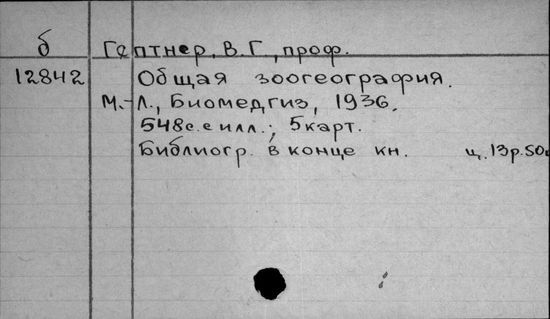 б Гептнер, В.Г., проф.
12842 Общая зоогеография.
М.-Л., Биомедгиз, 1936.
548с. с илл.; 5 карт.
Библиогр. в конце кн. ц. 13р.50к